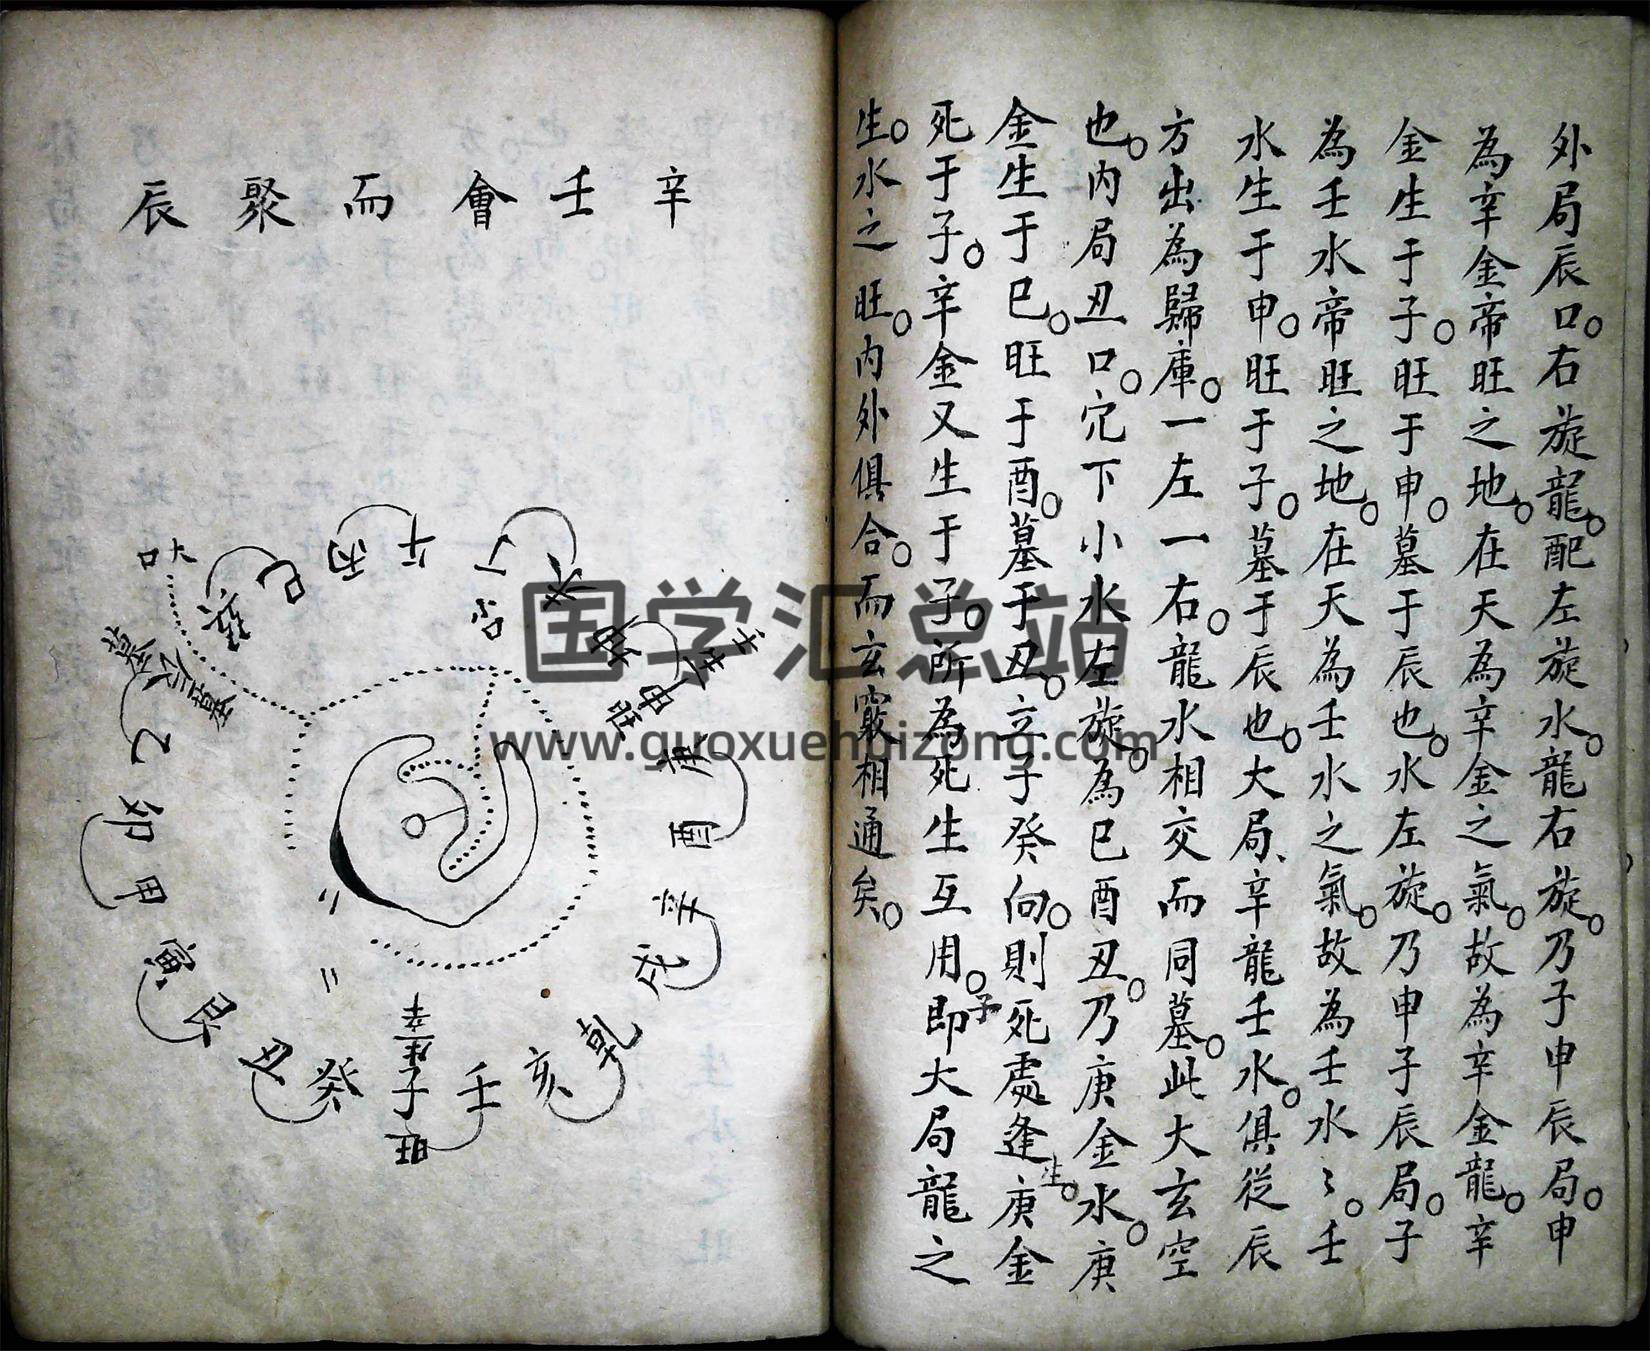 外局辰口。右旋龍。配左旋水。龍右旋。乃子申辰局。申
為辛金帝旺之地。在天為辛金之氣。故為辛金龍。辛
金生于子。旺于申。墓于辰也。水左旋。乃申子辰局。子
為壬水帝旺之地。在天為壬水之氣。故為壬水〻。壬
水生于申。旺于子。墓于辰也。大局、辛龍壬水。俱從辰
方出為歸庫。一左一右。龍水相交而同墓。此大玄空
也。內局丑口。穴下小水左旋。為巳酉丑。乃庚金水。庚
金生于巳。旺于酉。墓于丑。立子癸向。則死處逢生。庚金
死于子。辛金又生于子。所為死生互用。即子大局龍之
生。水之旺。內外俱合。而玄竅相通矣。
辛壬會而聚辰
大口
巽
巳
丙
午
丁
小口
未
坤
申
旺
壬生辛
庚
酉
辛
戌
乾
亥
壬
辛生子旺
癸
丑
艮
寅
甲
卯
乙
辰
國学汇总站
www.guoxuehuizong.com